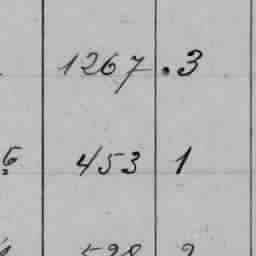 1267 . 3
6 453 1